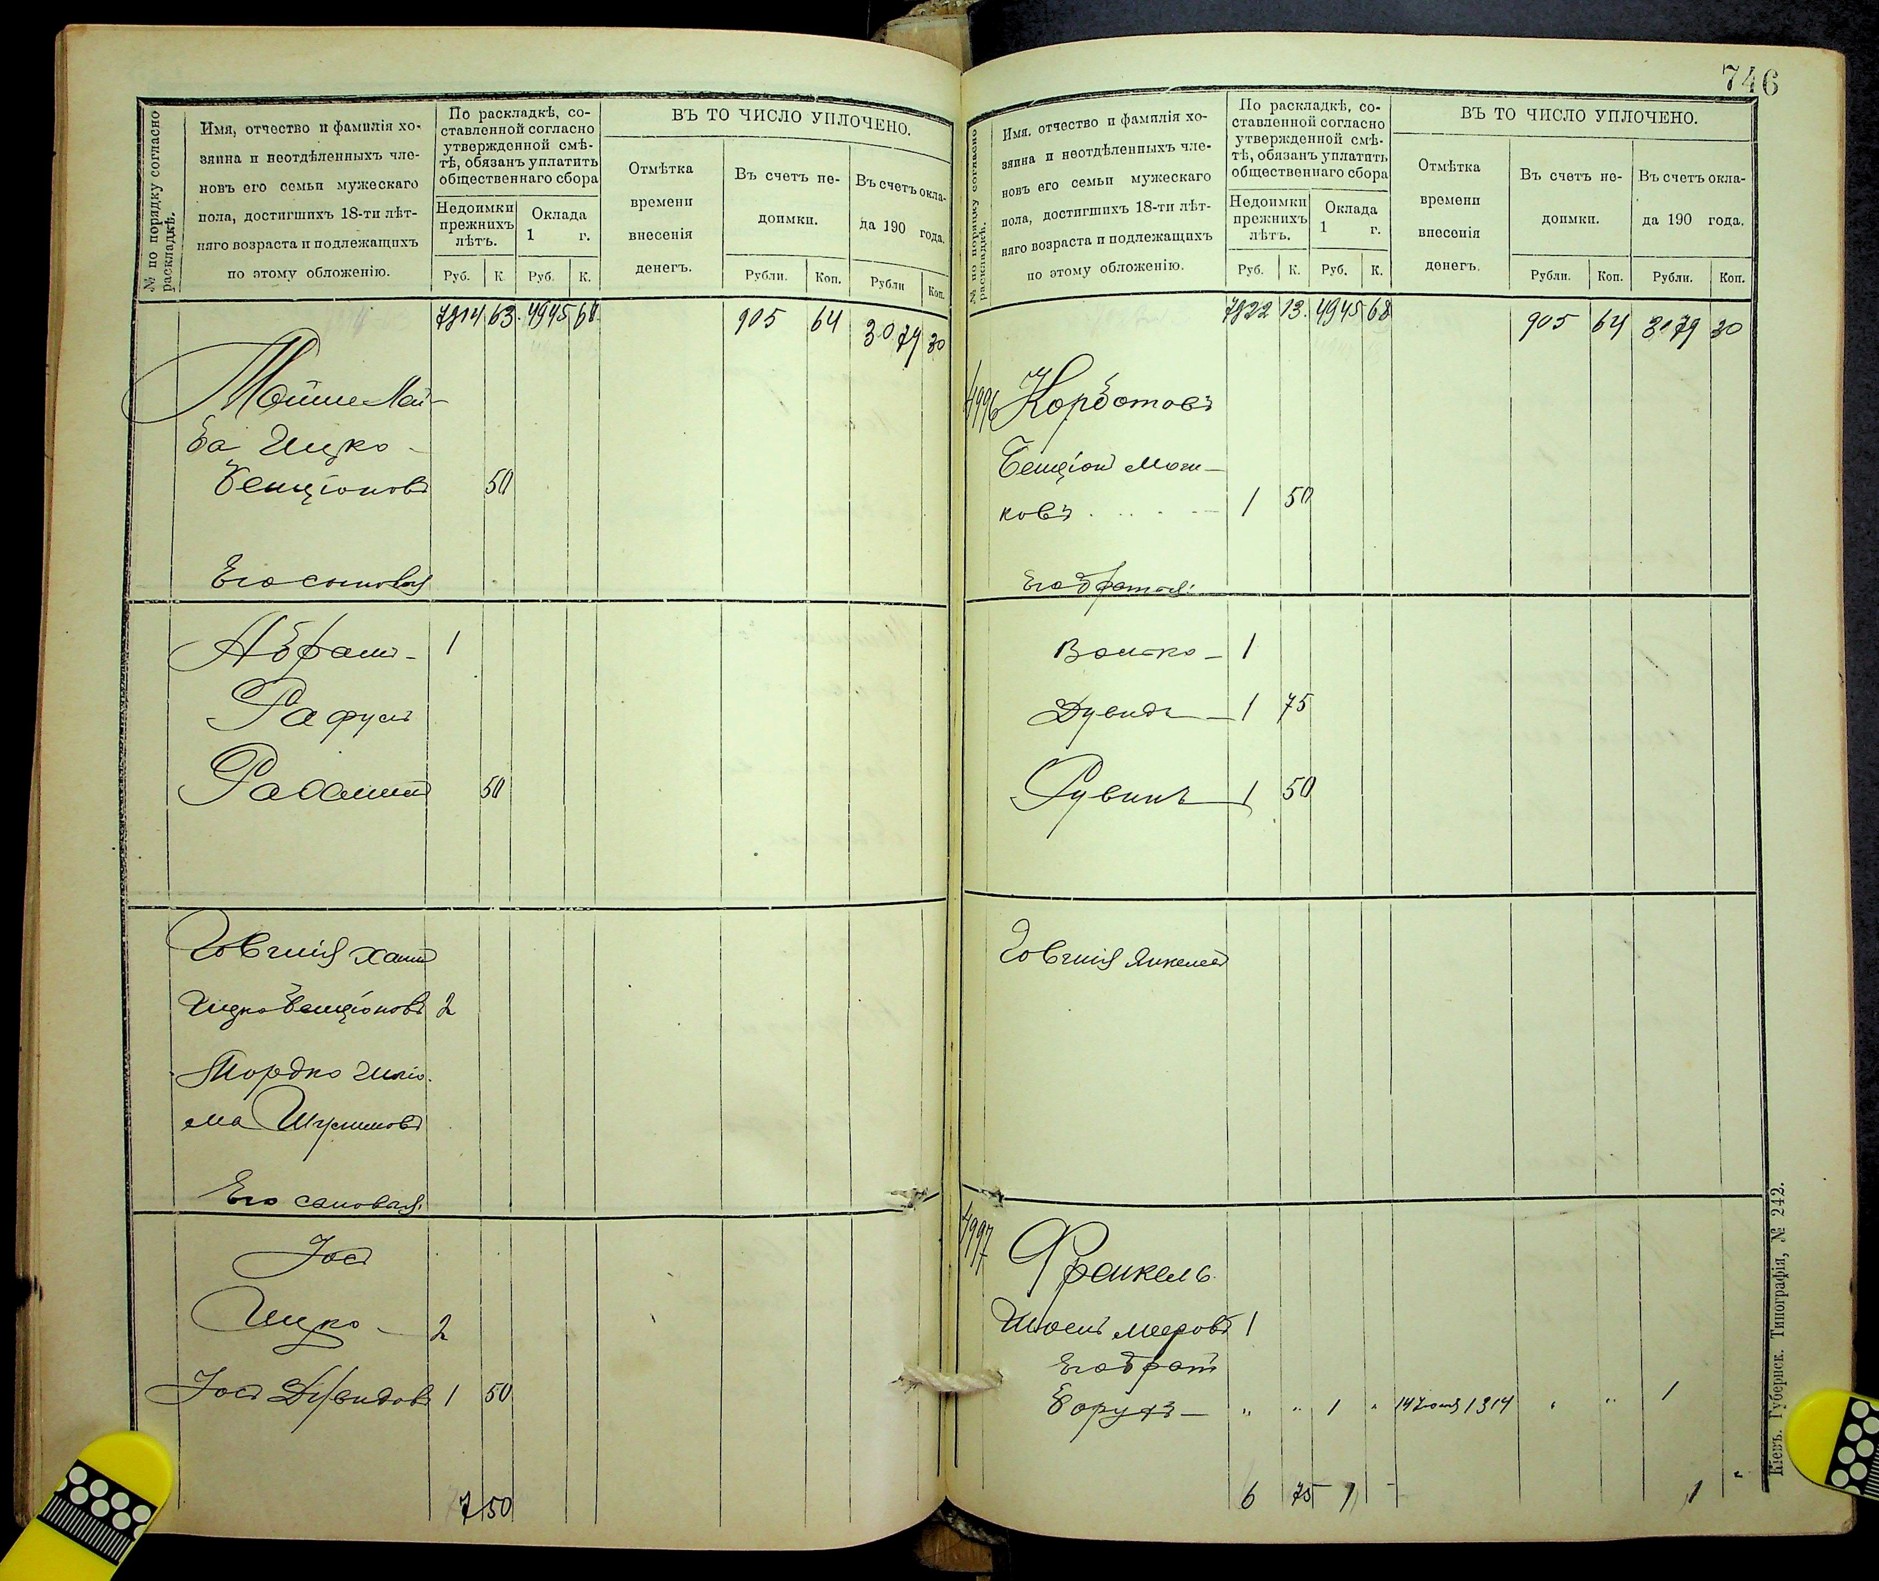 746
№ по порядку согласно раскладкѣ.
Имя, отчество и фамилія хо-
зяина и неотдѣленныхъ чле-
новъ его семьи мужескаго
пола, достигшихъ 18-ти лѣт-
няго возраста и подлежащихъ
по этому обложенію.
По раскладкѣ, со-
ставленной согласно
утвержденной смѣ-
тѣ, обязанъ уплатить
общественнаго сбора
Недоимки
прежнихъ
лѣтъ.
Оклада
1 г.
Руб. К. Руб. К.
ВЪ ТО ЧИСЛО УПЛОЧЕНО.
Отмѣтка
времени
внесенія
денегъ.
Въ счетъ не-
доимки.
Рубли. Коп.
Въ счетъ окла-
да 190 года.
Рубли Коп.
7814 63. 4945 68 905 64 3079 30
Мойше Лей-
ба Ицко-
Бенціоновъ 50
Его сыновья
Абрамъ - 1
Рафуль
50
Ицко Бенціоновъ 2
Мордко
Его сыновья.
Іосъ
Ицко - 2
Іосъ Дувидовъ 1 50
7 50
№ по порядку согласно раскладкѣ.
Имя, отчество и фамилія хо-
зяина и неотдѣленныхъ чле-
новъ его семьи мужескаго
пола, достигшихъ 18-ти лѣт-
няго возраста и подлежащихъ
по этому обложенію.
По раскладкѣ, со-
ставленной согласно
утвержденной смѣ-
тѣ, обязанъ уплатить
общественнаго сбора
Недоимки
прежнихъ
лѣтъ.
Оклада
1 г.
Руб. К. Руб. К.
ВЪ ТО ЧИСЛО УПЛОЧЕНО.
Отмѣтка
времени
внесенія
денегъ.
Въ счетъ не-
доимки.
Рубли. Коп.
Въ счетъ окла-
да 190 года.
Рубли. Коп.
7822 13. 4945 68 905 64 3079 30
4996 Корботовъ
Бенціон Мош-
ковъ - 1 50
Его братья:
Волько - 1
Дувидъ - 1 75
Рувинъ 1 50
4997 Франкель
Мееровъ 1
Его братъ
Борухъ - " " 1 " 1914 " " 1
6 75 1 - 1 "
Кіевъ. Губернск. Типографія, № 242.